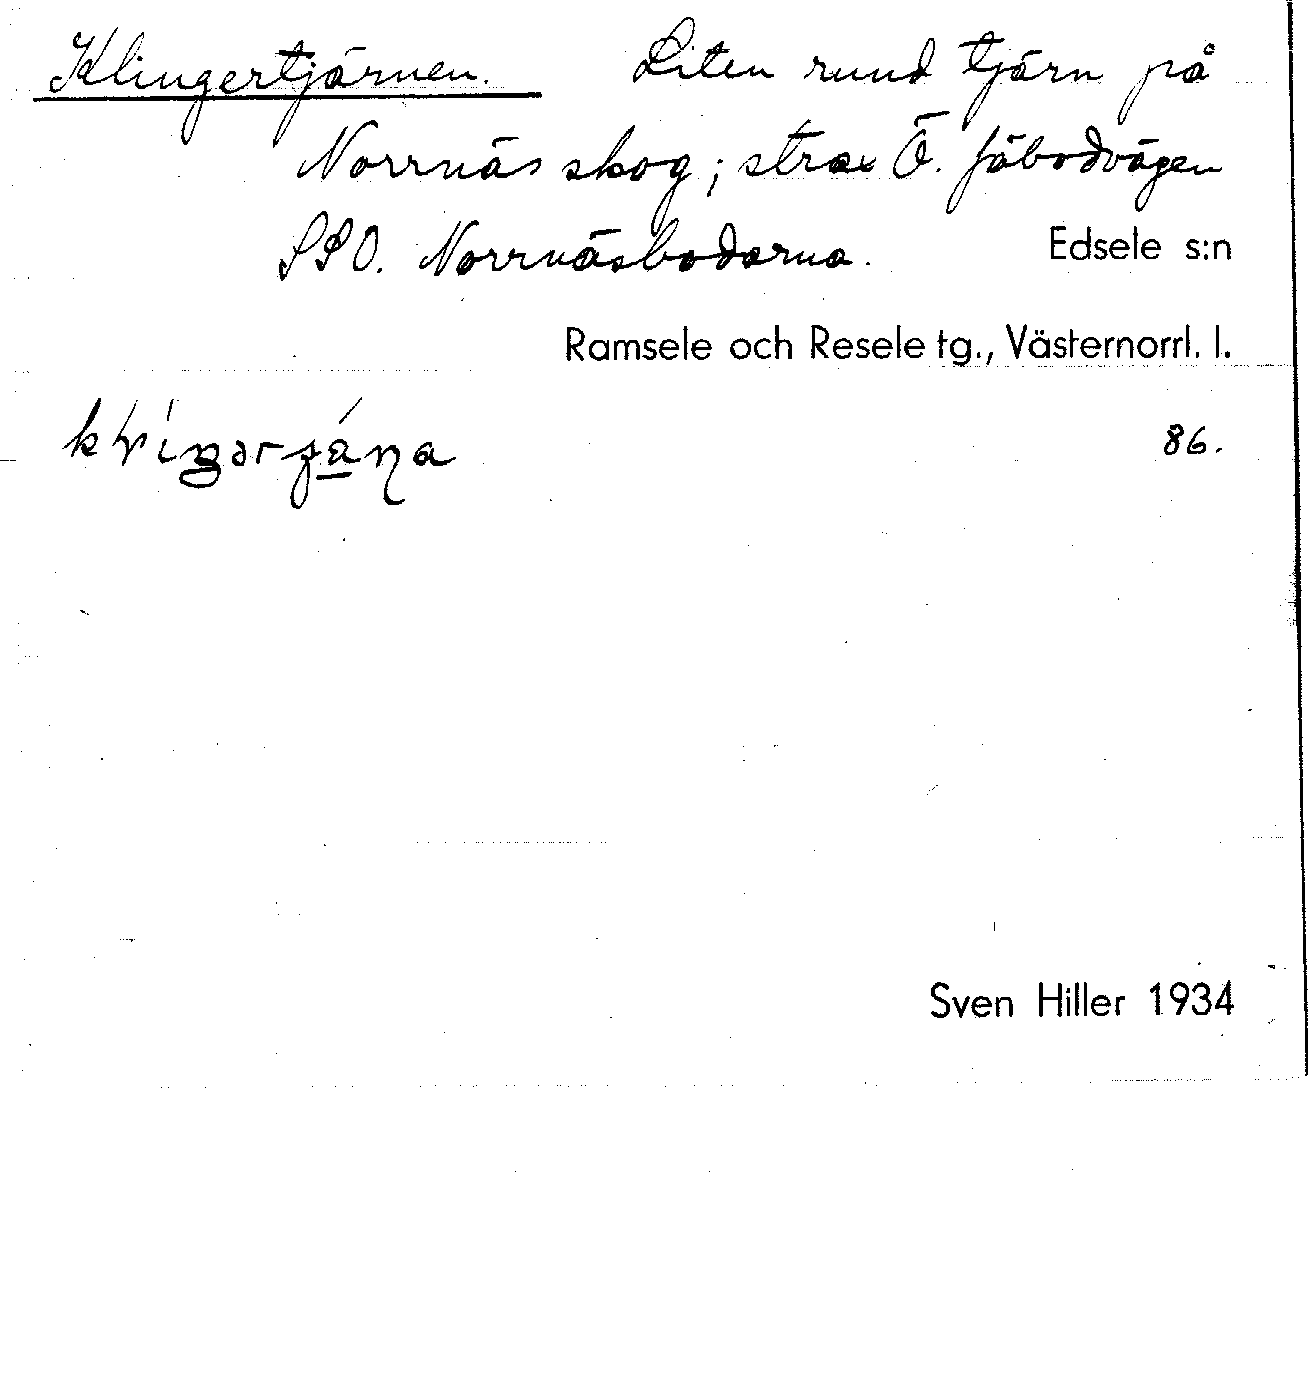 Klingertjärnen. Liten rund tjärn på
Norrnäs skog; strax Ö. fäbodvägen
SSO. Norrnäsbodarna.
Edsele s:n
Ramsele och Resele tg., Västernorrl. l.
86.
Sven Hiller 1934